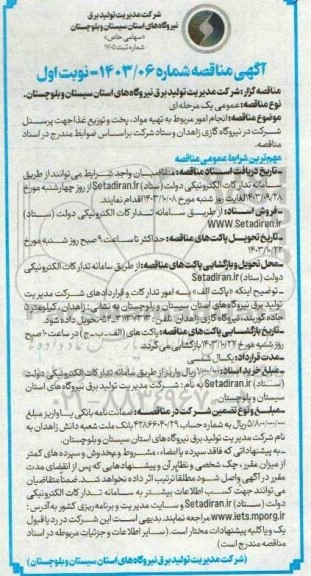 شرکت مدیریت تولید برق
نیروگاه‌های استان سیستان و بلوچستان
«سهامی خاص»
شماره ثبت ۱۷۰۵
آگهی مناقصه شماره ۱۴۰۳/۰۶ - نوبت اول
مناقصه گزار: شرکت مدیریت تولید برق نیروگاه‌های استان سیستان و بلوچستان.
نوع مناقصه: عمومی یک مرحله ای
موضوع مناقصه: انجام امور مربوط به تهیه مواد، پخت و توزیع غذا جهت پرسنل
شرکت در نیروگاه گازی زاهدان و ستاد شرکت براساس ضوابط مندرج در اسناد
مناقصه.
مهم‌ترین شرایط عمومی مناقصه
ـ تاریخ دریافت اسناد مناقصه: متقاضیان واجد شرایط می توانند از طریق
سامانه تدارکات الکترونیکی دولت (ستاد) Setadiran.ir از روز چهارشنبه مورخ
۱۴۰۳/۰۹/۲۸ لغایت روز شنبه مورخ ۱۴۰۳/۱۰/۰۸ اقدام نمایند.
ـ فروش اسناد: از طریق سامانه تدارکات الکترونیکی دولت (ستاد)
WWW.Setadiran.ir
ـ تاریخ تحویل پاکت‌های مناقصه: حداکثر تا ساعت ۹ صبح روز شنبه مورخ
۱۴۰۳/۱۰/۲۲
ـ محل تحویل و بازگشایی پاکت های مناقصه: از طریق سامانه تدارکات الکترونیکی
دولت (ستاد) Setadiran.ir
ـ توضیح اینکه «پاکت الف» به امور تدارکات و قراردادهای شرکت مدیریت
تولید برق نیروگاه‌های استان سیستان و بلوچستان به نشانی: زاهدان، کیلومتر ۵
جاده کورین، نیروگاه گازی زاهدان تلفن: تحویل داده شود.
تاریخ بازگشایی پاکت های مناقصه: پاکت های (الف-ب-ج) در ساعت ۱۰ صبح
روز شنبه مورخ ۱۴۰۳/۱۰/۲۲ بازگشایی می گردد.
مدت قرارداد: یکسال شمسی
ـ مبلغ خرید اسناد: ۱/۰۰۰/۰۰۰ ریال واریز از طریق سامانه تدارکات الکترونیکی دولت
(ستاد) Setadiran.ir به نام: شرکت مدیریت تولید برق نیروگاه های استان
سیستان و بلوچستان.
ـ مبلغ و نوع تضمین شرکت در مناقصه: ضمانت نامه بانکی یا واریز مبلغ
ریال به شماره حساب بانک ملت شعبه دانش زاهدان به
نام شرکت مدیریت تولید برق نیروگاه های استان سیستان و بلوچستان.
ـ به پیشنهاداتی که فاقد سپرده یا امضاء، مشروط و مخدوش و سپرده های کمتر
از میزان مقرر، چک شخصی و نظایر آن و پیشنهادهایی که پس از انقضای مدت
مقرر در آگهی واصل شود مطلقاً ترتیب اثر داده نخواهد شد. ضمناً متقاضیان
می توانند جهت کسب اطلاعات بیشتر به سامانه تدارکات الکترونیکی
دولت (ستاد) Setadiran.ir و سایت مدیریت و برنامه ریزی کشور به آدرس:
www.iets.mporg.ir مراجعه نمایند. بدیهی است این شرکت در رد یا قبول
یک و یا کلیه پیشنهادات مختار است. (سایر اطلاعات و جزئیات مربوطه در اسناد
مناقصه مندرج است)
(شرکت مدیریت تولید برق نیروگاه های استان سیستان و بلوچستان)